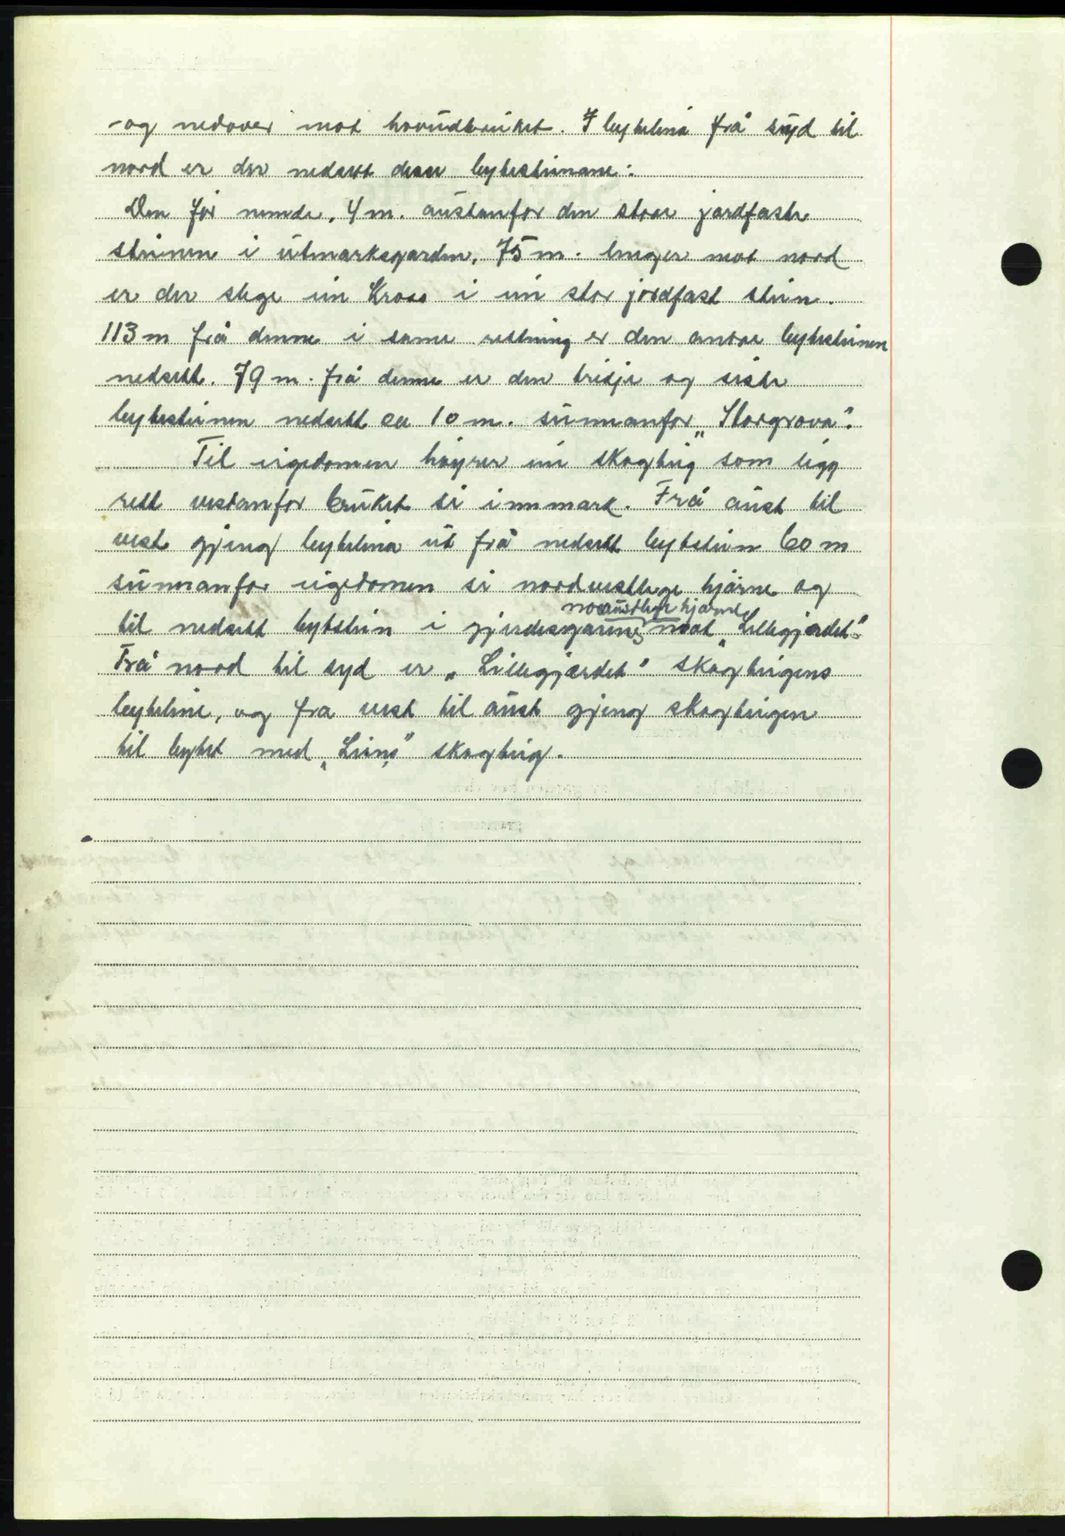 -og nedover mot hovudbruket. I bytelina frå syd til
nord er der nedsett desse bytesteinane:
Den før nemde, 4 m. austanfor den store jordfaste
steinen i utmarksgarden. 75 m. lenger mot nord
er der slege ein Kross i ein stor jordfast stein.
113 m frå denne i same rettning er den andre bytesteinen
nedsett. 79 m. frå denne er den tridje og siste
bytesteinen nedsett ca 10 m. sunnanfor „Storgrova".
Til eigedomen høyrer ein skogteig som ligg
rett vestanfor bruket si innmark. Frå aust til
vest gjeng bytelina ut frå nedsett bytestein 60 m
sunnanfor eigedomen si nordvestlege hjørne og
noraustlege hjørne
til nedsett bytestein i gjerdesgarens mot „Lillegjerdet".
Frå nord til syd er „Lillegjærdet" skogteigens
byteline, og fra vest til aust gjeng skogteigen
til bytet med „Liens" skogteig.